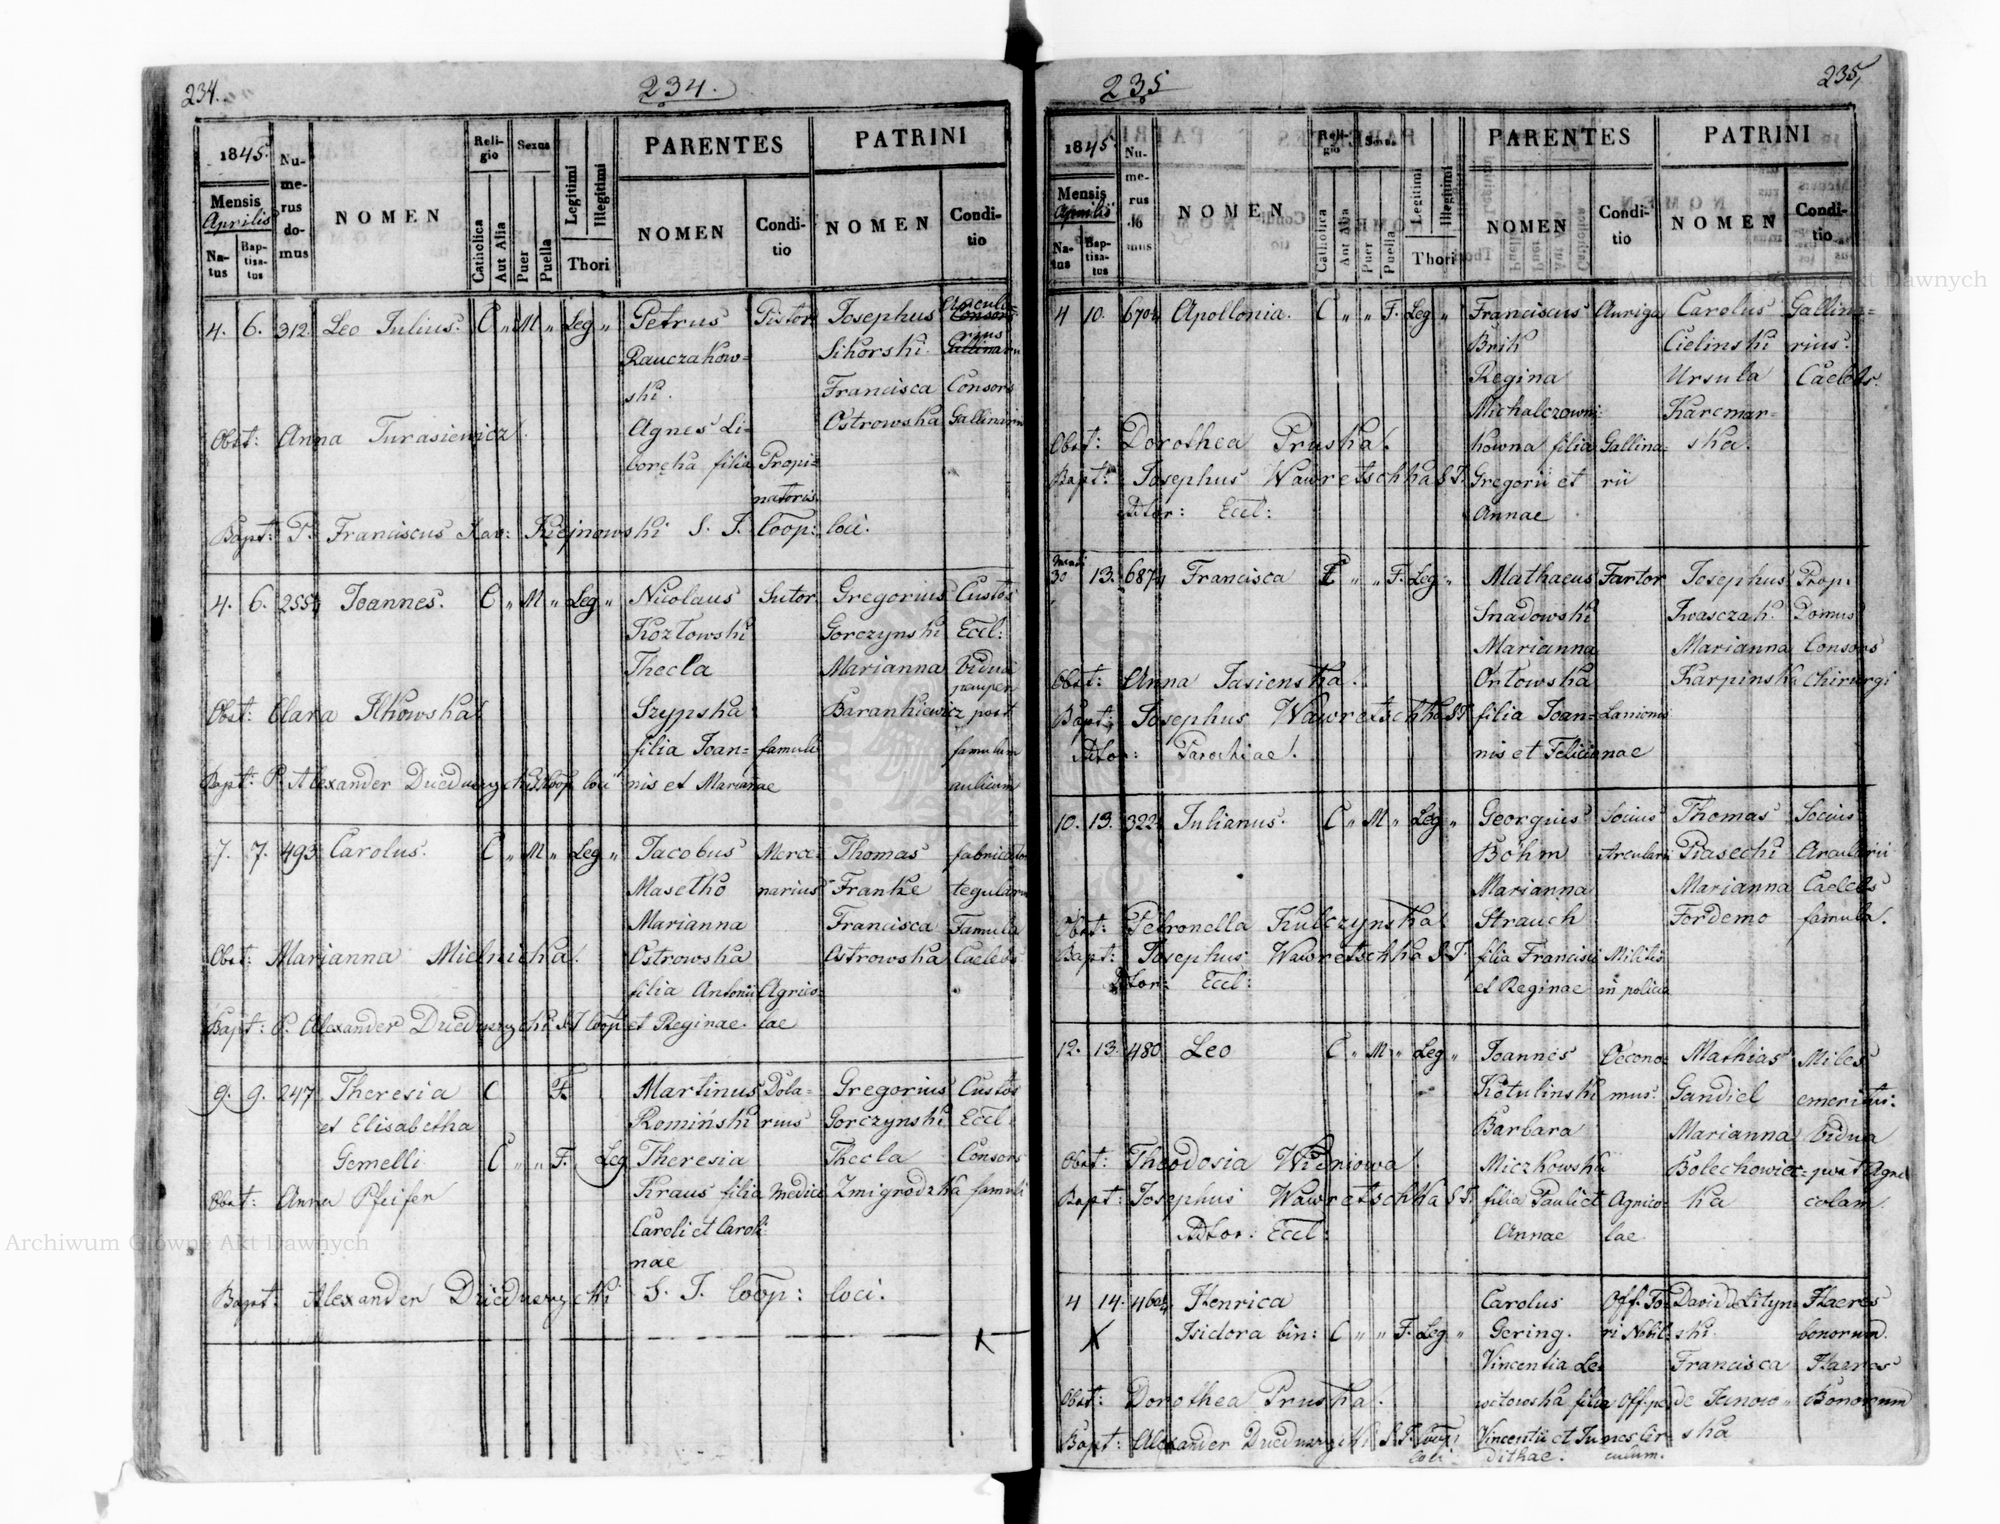 234.
234.
1845.
Numerus domus
NOMEN
Religio
Sexus
Legitimi
Illegitimi
PARENTES
PATRINI
Mensis
Aprilis
Catholica
Aut Alia
Puer
Puella
Thori
NOMEN
Conditio
NOMEN
Conditio
Natus
Baptisatus
4. 6. 312. Leo Julius. C „ M „ Leg „ Petrus Pistor Josephus
Rauczakow= Sikorski
ski. Francisca Consors
Obst: Anna Jurasiewicz. Agnes Li= Ostrowska Gallinarii
boręka filia Propi=
natoris
Bapt: P. Franciscus Xav: Kiejnowski S. T. Coop: loci.
4. 6. 255 Joannes. C „ M „ Leg „ Nicolaus Sutor Gregorius Custos
Kozłowski Gorczynski Eccl:
Thecla Marianna Vidua
Obst: Clara Ilkowska Szypska Barankiewicz post
filia Joan= famuli famulum
Bapt: P. Alexander Dzieduszycki Coop loci nis et Mariannae aulicum
7. 7. 493 Carolus. C „ M „ Leg „ Jacobus Merce= Thomas fabricator
Masetho narius Franke tegularum
Marianna Francisca Famula
Obst: Marianna Mielnicka. Ostrowska Ostrowska Caelebs
filia Antonii Agrico=
Bapt: P. Alexander Dzieduszycki S T Coop et Reginae. lae
9. 9. 247 Theresia C F. Martinus Dola= Gregorius Custos
et Elisabetha Romiński rius Gorczynski Eccl.
Gemelli C „ „ F. Leg Theresia Thecla Consors
Obst: Anna Pfeifer Kraus filia Medici Zmigrodzka famuli
Caroli et Caroli
nae
Bapt: Alexander Dzieduszycki S. T. Coop: loci.
235
235,
1845.
Numerus domus
NOMEN
Religio
Sexus
Legitimi
Illegitimi
PARENTES
PATRINI
Mensis
Aprilis
Catholica
Aut Alia
Puer
Puella
Thori
NOMEN
Conditio
NOMEN
Conditio
Natus
Baptisatus
4 10. 670 Apollonia. C „ „ F. Leg „ Franciscus Auriga Carolus Gallina=
Brik Cielinski rius.
Regina Ursula Caelebs.
Michalczowni= Karcmar=
Obst: Dorothea Pruska. kowna filia Gallina= ska.
Bapt: Josephus Wawretschka S T. Gregorii et rii
Adtor: Eccl: Annae
30 13. 687 Francisca C „ „ F. Leg „ Mathaeus Fartor Josephus Prop:
Snadowski Iwasczak. Domus
Marianna Marianna Consors
Obst: Anna Jasienska. Orłowska Karpinska Chirurgi
Bapt: Josephus Wawretschka S T filia Joan= Lanionis
Adtor: Parochiae. nis et Felicianae
10. 13. 322 Julianus. C „ M „ Leg „ Georgius Socius Thomas Socius
Böhm Arcularii Piasecki Arcularii
Marianna Marianna Caelebs
Obst: Petronella Kulczynska Strauch Fordemo famula.
Bapt: Josephus Wawretschka S T. filia Francisci Militis
Adtor: Eccl: et Reginae in policia
12. 13. 480 Leo C „ M „ Leg „ Joannes Oecono= Mathias Miles
Kotulinski mus. Gandiel emeritus.
Barbara Marianna Vidua
Obst: Theodosia Wisniowa. Miczkowska Bolechowiec= post Agri
Bapt: Josephus Wawretschka S T. filia Pauli et Agrico= ka colam.
Adtor: Eccl: Annae lae
4 14. 460 Henrica Carolus Off. Fo= David de Lityn= Haeres
Isidora bin: C „ „ F. Leg „ Gering. ri Nobil. ski. bonorum.
Vincentia Le= Francisca Haeres
Obst: Dorothea Pruska. witowska filia de Janow= Bonorum
Bapt: Alexander Dzieduszycki S. T. Coop: Vincentii et Ju= ska
loci dithae.
Archiwum Główne Akt Dawnych
Archiwum Główne Akt Dawnych